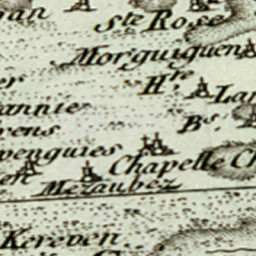 Ste Rose
Morguiguen
H.re
Lan
annie
B.s
rens
venguies
Chapelle Ch
en
Mezaubez
Kereven